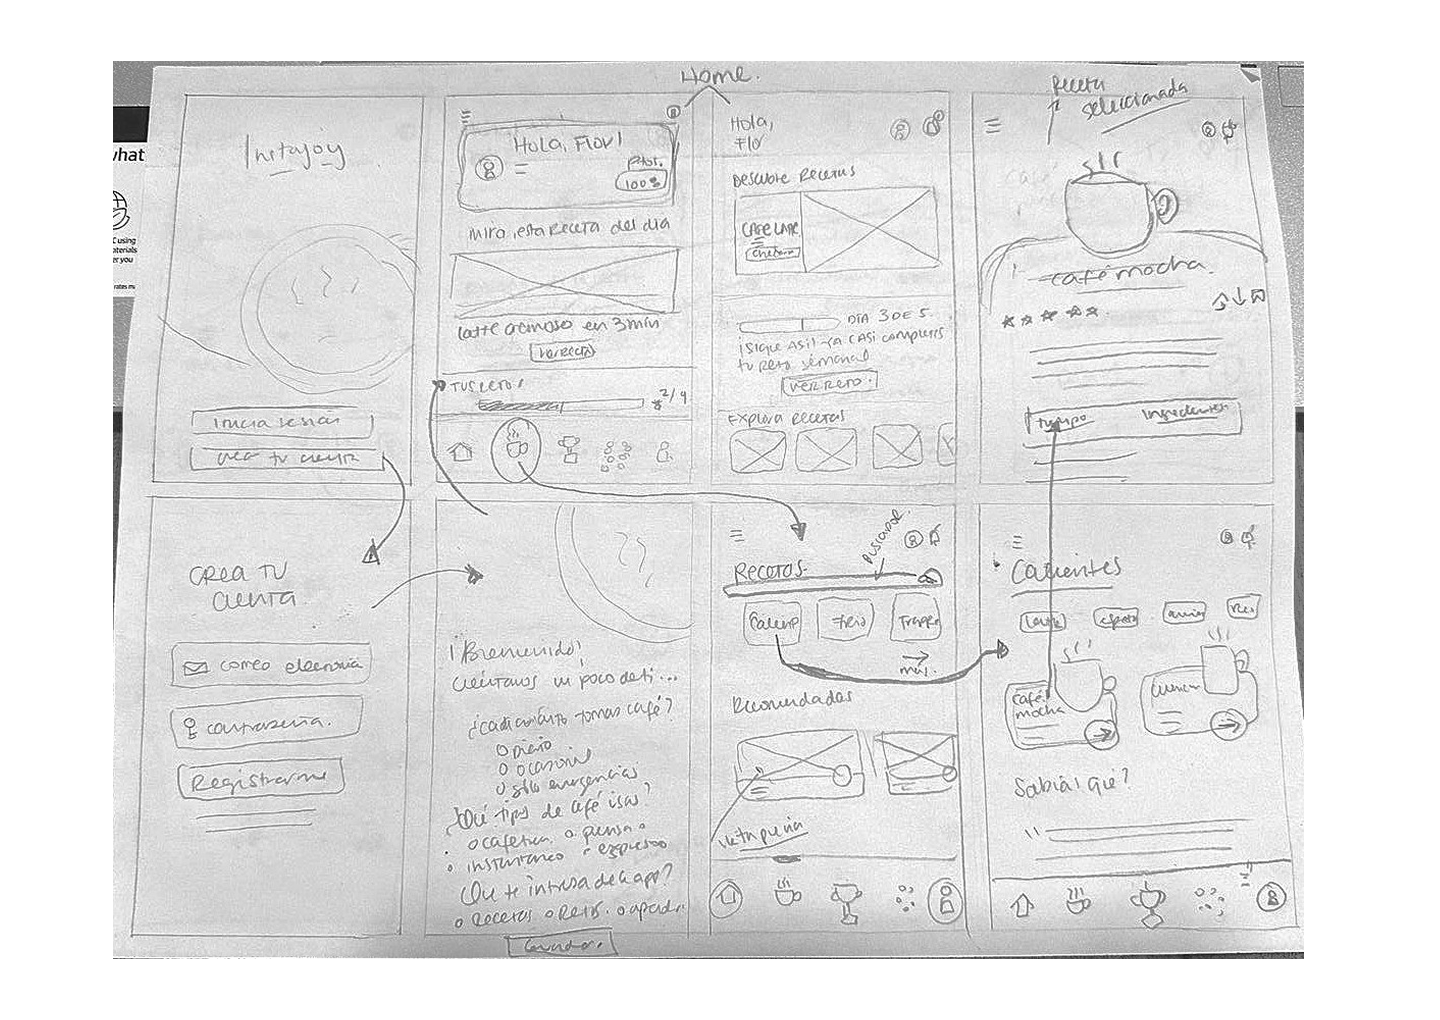 Home.
Receta
seleccionada
Instajoy
Inicia sesión
Crea tu cuenta
Hola, Flor!
Ptos.
100
mira esta receta del día
latte cremoso en 3 min
ver receta
TUS RETOS
2/4
Hola,
Flo
Descubre Recetas
CAFE LATE
DÍA 3 DE 5
¡Sigue así! Ya casi completas
tu reto semanal
VER RETO.
Explora Recetas
café mocha.
Tiempo
Ingredientes
CREA TU
CUENTA
correo electronico
contraseña.
Registrarme
¡Bienvenido!
Cuéntanos un poco de ti...
¿Cada cuánto tomas café?
diario
ocasional
sólo emergencias
¿Qué tipos de café usas?
cafetera
prensa
instantaneo
expresso
Que te interesa de la app?
recetas
Retos.
buscador.
Recetas.
Caliente
Frío
Frappe
más.
Recomendadas
Calientes
Latte
Café
mocha
Sabías qué?
what
C using
aterials
er you
rates m